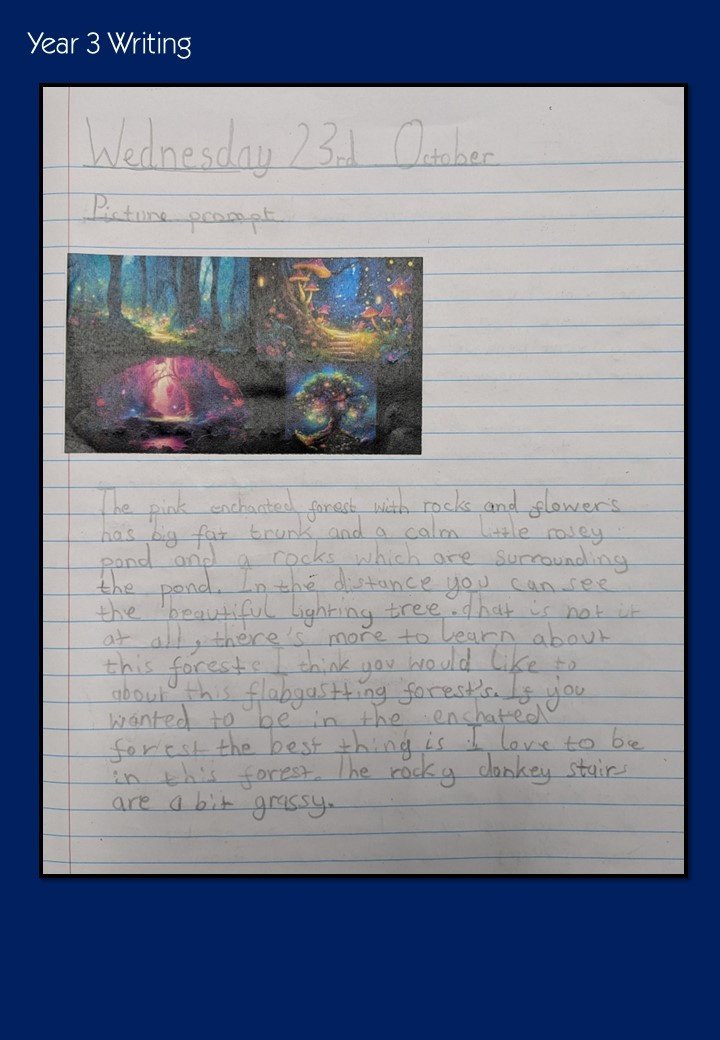 Year 3 Writing
Wednesday 23rd October
Picture prompt
The pink enchanted forest with rocks and flowers
has big fat trunk and a calm little rosey
pond and a rocks which are surrounding
the pond. In the distance you can see
the beautiful lighting tree. That is not it
at all, there's more to learn about
this forests I think you would like to
about this flabgastting forest's. If you
wanted to be in the enchated
forest the best thing is I love to be
in this forest. The rocky donkey stairs
are a bit grassy.